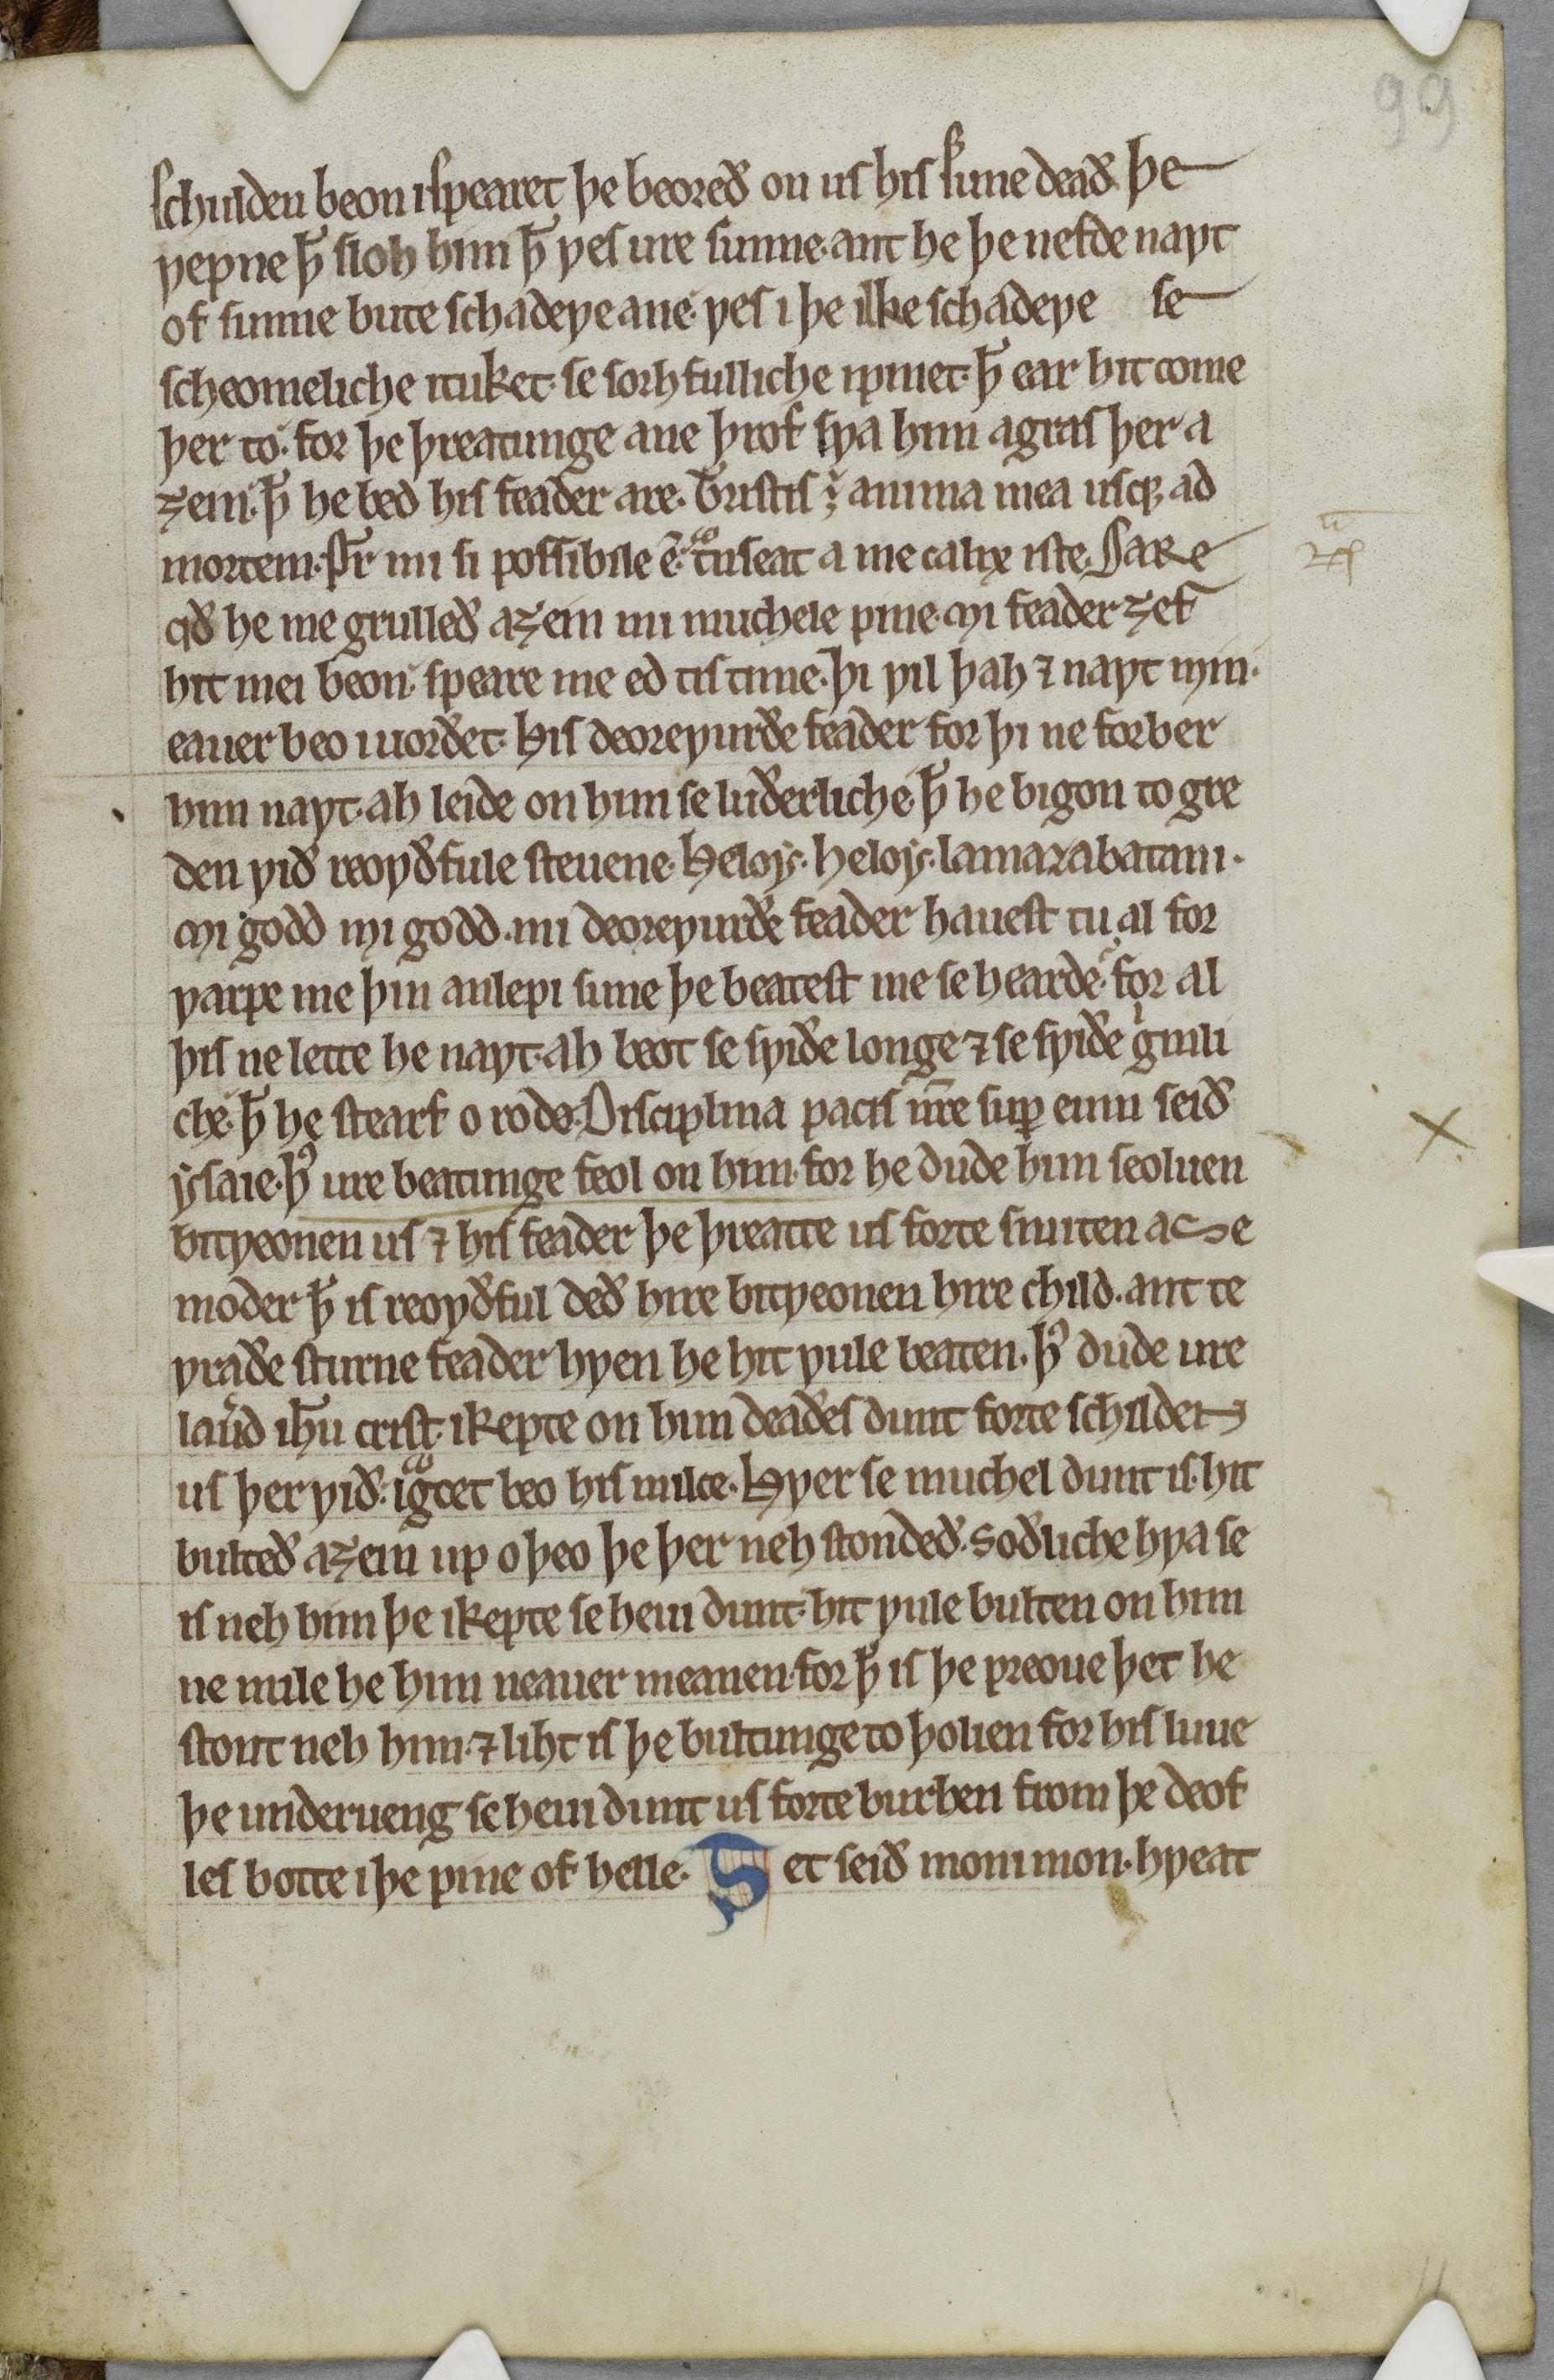 99
schulden beon ispearet þe beoreð on us his sune deað. þe
ƿepne ꝥ sloh him ꝥ ƿes ure sunne. ant he þe nefde naƿt
of sunne bute schadeƿe ane. ƿes i þe ilke schadeƿe se
scheomeliche ituket. se sorhfulliche ipinet. ꝥ ear hit come
þer to. for þe þreatunge ane þrof sƿa him agras þer a
ȝein. ꝥ he bed his feader are. Tͥstis ÷ anima mea usqꝫ ad
mortem. pr̄ mi si possibile ē. tᵃnseat a me calix iste. Sare
qð he me grulleð aȝein mi muchele pine. Mi feader ȝef
hit mei beon. speare me ed tis time. þi ƿil þah ⁊ naƿt min.
eauer beo iuorðet. His deoreƿurðe feader for þi ne forber
him naƿt. ah leide on him se luðerliche. ꝥ he bigon to gre
den ƿið reoƿðfule steuene. Heloẏ. heloẏ. lamazabatani.
Mi godd mi godd. mi deoreƿurðe feader hauest tu al for
ƿarpe me þin anlepi sune þe beatest me se hearde. for al
þis ne lette he naƿt. ah beot se sƿiðe longe ⁊ se sƿiðe gͥmli
che. ꝥ he stearf o rode. Disciplina pacis nr̄e suꝑ eum seið
ẏsaie. þꝰ ure beatunge feol on him. for he dude him seoluen
bitƿeonen us ⁊ his feader þe þreatte us forte smiten ase
moder ꝥ is reoƿðful deð hire bitƿeonen hire child. ant te
ƿraðe sturne feader hƿen he hit ƿule beaten. þꝰ dude ure
lau͛d ihū crist. ikepte on him deaðes dunt forte schilden
us þer ƿið. igᵃcet beo his milce. Hƿer se muchel dunt is. hit
bulteð aȝein up o þeo þe þer neh stondeð. Soðliche hƿa se
is neh him þe ikepte se heui dunt. hit ƿule bulten on him
ne nule he him neauer meanen. for ꝥ is þe preoue þet he
stont neh him. ⁊ liht is þe bultunge to þolien for his luue
þe underueng se heui dunt us forte burhen from þe deof
les botte i þe pine of helle. Set seið moni mon. hƿeat